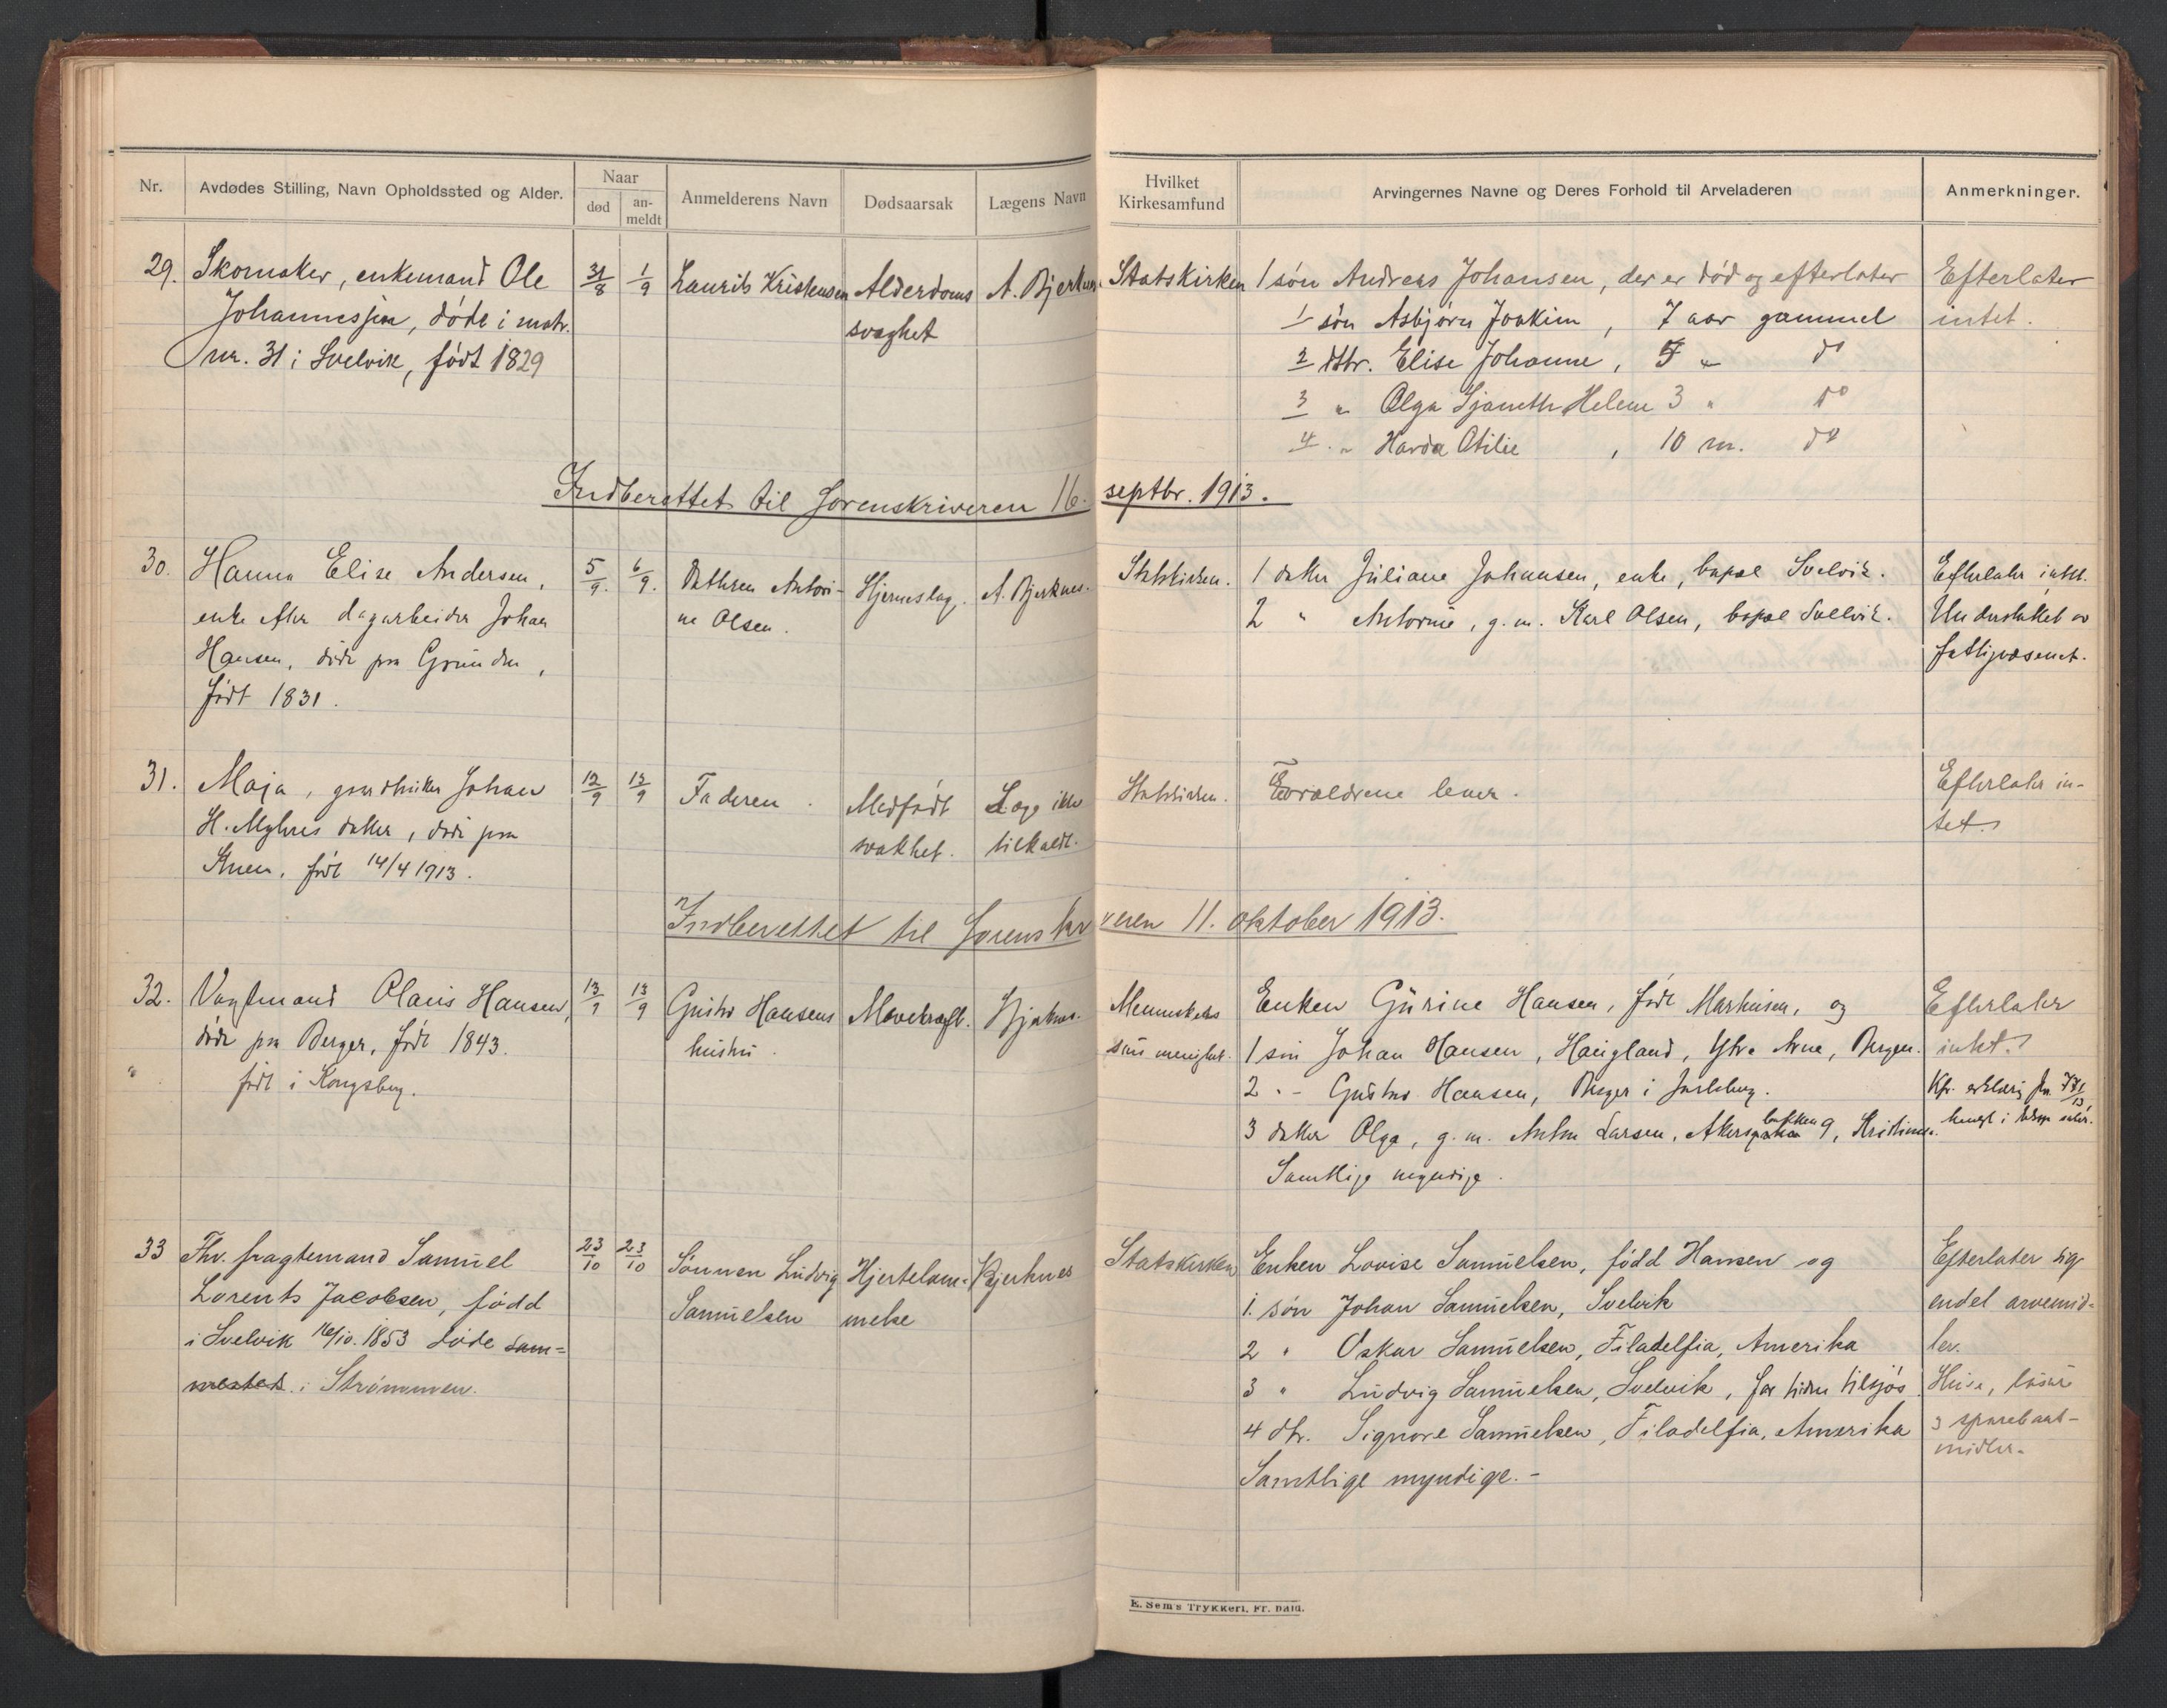 Nr. Avdødes Stilling, Navn Opholdssted og Alder. Naar død an-meldt Anmelderens Navn Dødsaarsak Lægens Navn Hvilket Kirkesamfund Arvingernes Navne og Deres Forhold til Arveladeren Anmerkninger.
29. Skomaker, enkemand Ole 31/8 1/9 Laurits Kristensen Alderdoms A. Bjerknes Statskirken 1 søn Andreas Johansen, der er død og efterlater Efterlater
Johannesjen, døde i matr. svaghet 1 søn Asbjørn Joakim, 7 aar gammel intet.
nr. 31 i Svelvik, født 1829 2 dtr. Elise Johanne, 5 " do
3 " Olga Helene 3 " do
4 " Harda Otilie, 10 m. do
Indberettet til Sorenskriveren 16. septbr. 1913.
30. Hanna Elise Andersen, 5/9. 6/9. Datteren Antori- Hjerneslag. A. Bjerknes. Statskirken. 1 datter Juliane Johansen, enke, bopæl Svelvik. Efterlater intet.
enke efter dagarbeider Johan ne Olsen. 2 " Antorine, g. m. Karl Olsen, bopæl Svelvik. Understøttet av
Hansen, døde paa Grunden, fattigvæsenet.
født 1831.
31. Maja, gaardbruker Johan 12/9 13/9 Faderen. Medfødt Læge ikke Statskirken. Forældrene lever. Efterlater in-
H. Myhres datter, døde paa svakhet. tilkaldt. tet.
Knem, født 14/4 1913.
Indberettet til Sorenskriveren 11. oktober 1913.
32. Vagtmand Olaus Hansen, 13/9 13/9 Gustav Hansens Mavekræft. Bjerknes. Menneskens Enken Gurine Hansen, født Marhusen, og Efterlater
døde paa Berger, født 1843. hustru. søns menighet. 1 søn Johan Hansen, Haugland, Ytre Arne, Bergen. intet.
født i Kongsberg. 2 " Gustav Hansen, Berger i Jarlsberg. Kfr. erklæring
3 datter Olga, g. m. Anton Larsen, Akersbakken 9, Kristiania.
Samtlige myndige.
33 Fhv. fragtemand Samuel 23/10 23/10 Sønnen Ludvig Hjertelam- Bjerknes Statskirken Enken Lovise Samuelsen, född Hansen og Efterlater sig
Lorents Jacobsen, född Samuelsen melse 1. søn Johan Samuelsen, Svelvik endel arvemid-
i Svelvik 16/10. 1853 döde sam= 2 " Oskar Samuelsen, Filadelfia, Amerika ler.
mested i Strømmen. 3 " Ludvig Samuelsen, Svelvik, for tiden tilsjøs Huse, løsøre
4 dtr. Signore Samuelsen, Filadelfia, Amerika
Samtlige myndige. -
E. Sem's Trykkeri, Fr. hald.